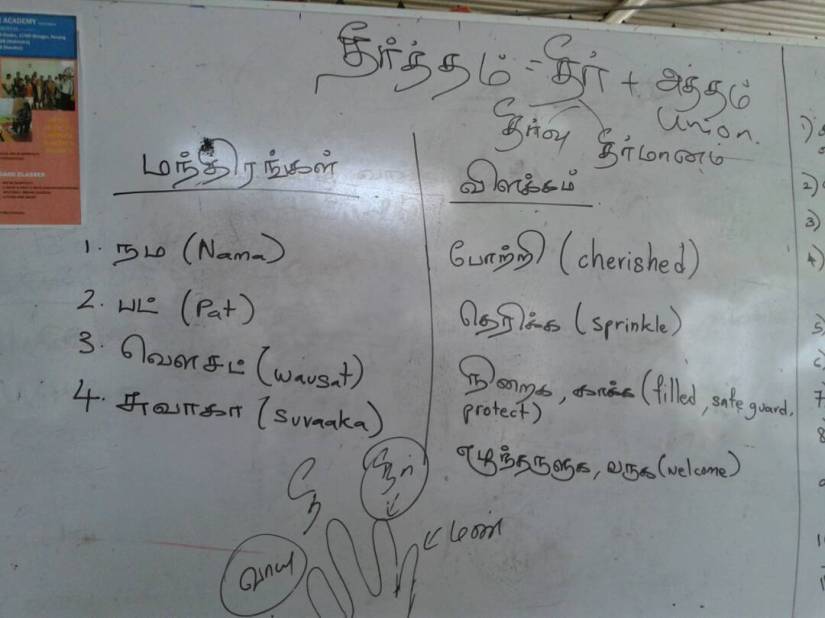 ACADEMY
தீர்த்தம் = தீர் + அத்தம்
தீர்வு தீர்மானம் Union.
மந்திரங்கள்
விளக்கம்
1. நம (Nama)
போற்றி (cherished)
2. பட் (Pat)
தெரிக்க (sprinkle)
3. வௌசட் (Wausat)
நிறைக, காக்க (filled, safe guard,
protect)
4. சுவாகா (Suvaaka)
எழுந்தருளுக, வருக (welcome)
தீ
நீர்
வாயு
மண்
1)
2)
3)
4)
5)